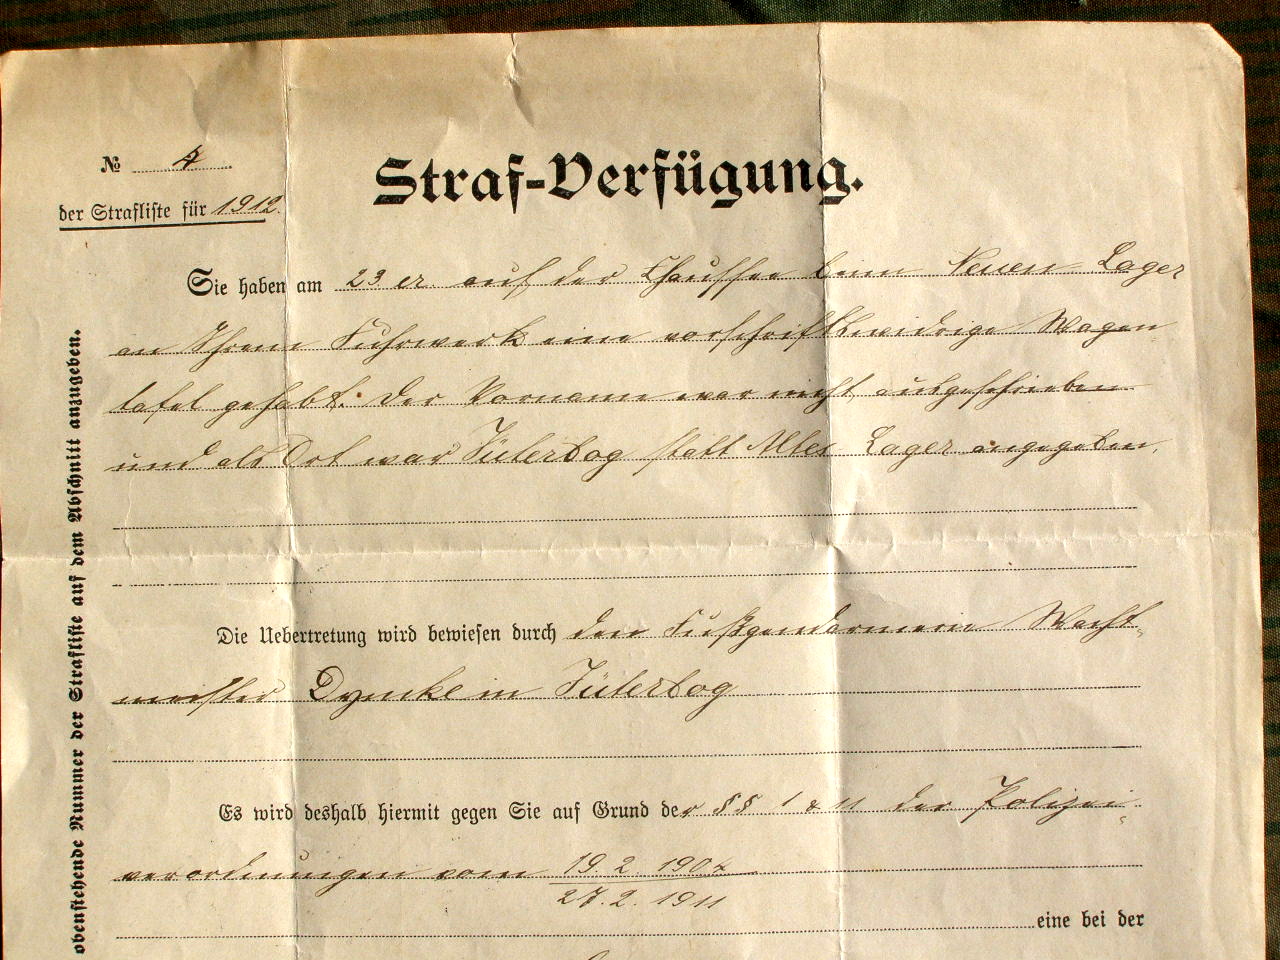 № 4
der Strafliste für 1912.
Straf-Verfügung.
Sie haben am 23 cr. auf der Chaussee beim Neuen Lager
an Ihrem Fuhrwerk eine vorschriftswidrige Wagen
tafel gehabt. Der Vorname war nicht ausgeschrieben
und als Ort war Jüterbog statt Altes Lager angegeben.
Die Uebertretung wird bewiesen durch den Fußgendarmerie Wacht-
meister Dymke in Jüterbog
Es wird deshalb hiermit gegen Sie auf Grund der §§ 1 & 11 der Polizei-
verordnungen vom 19.2.1904
27.2.1911
eine bei der
obenstehende Nummer der Strafliste auf dem Abschnitt anzugeben.